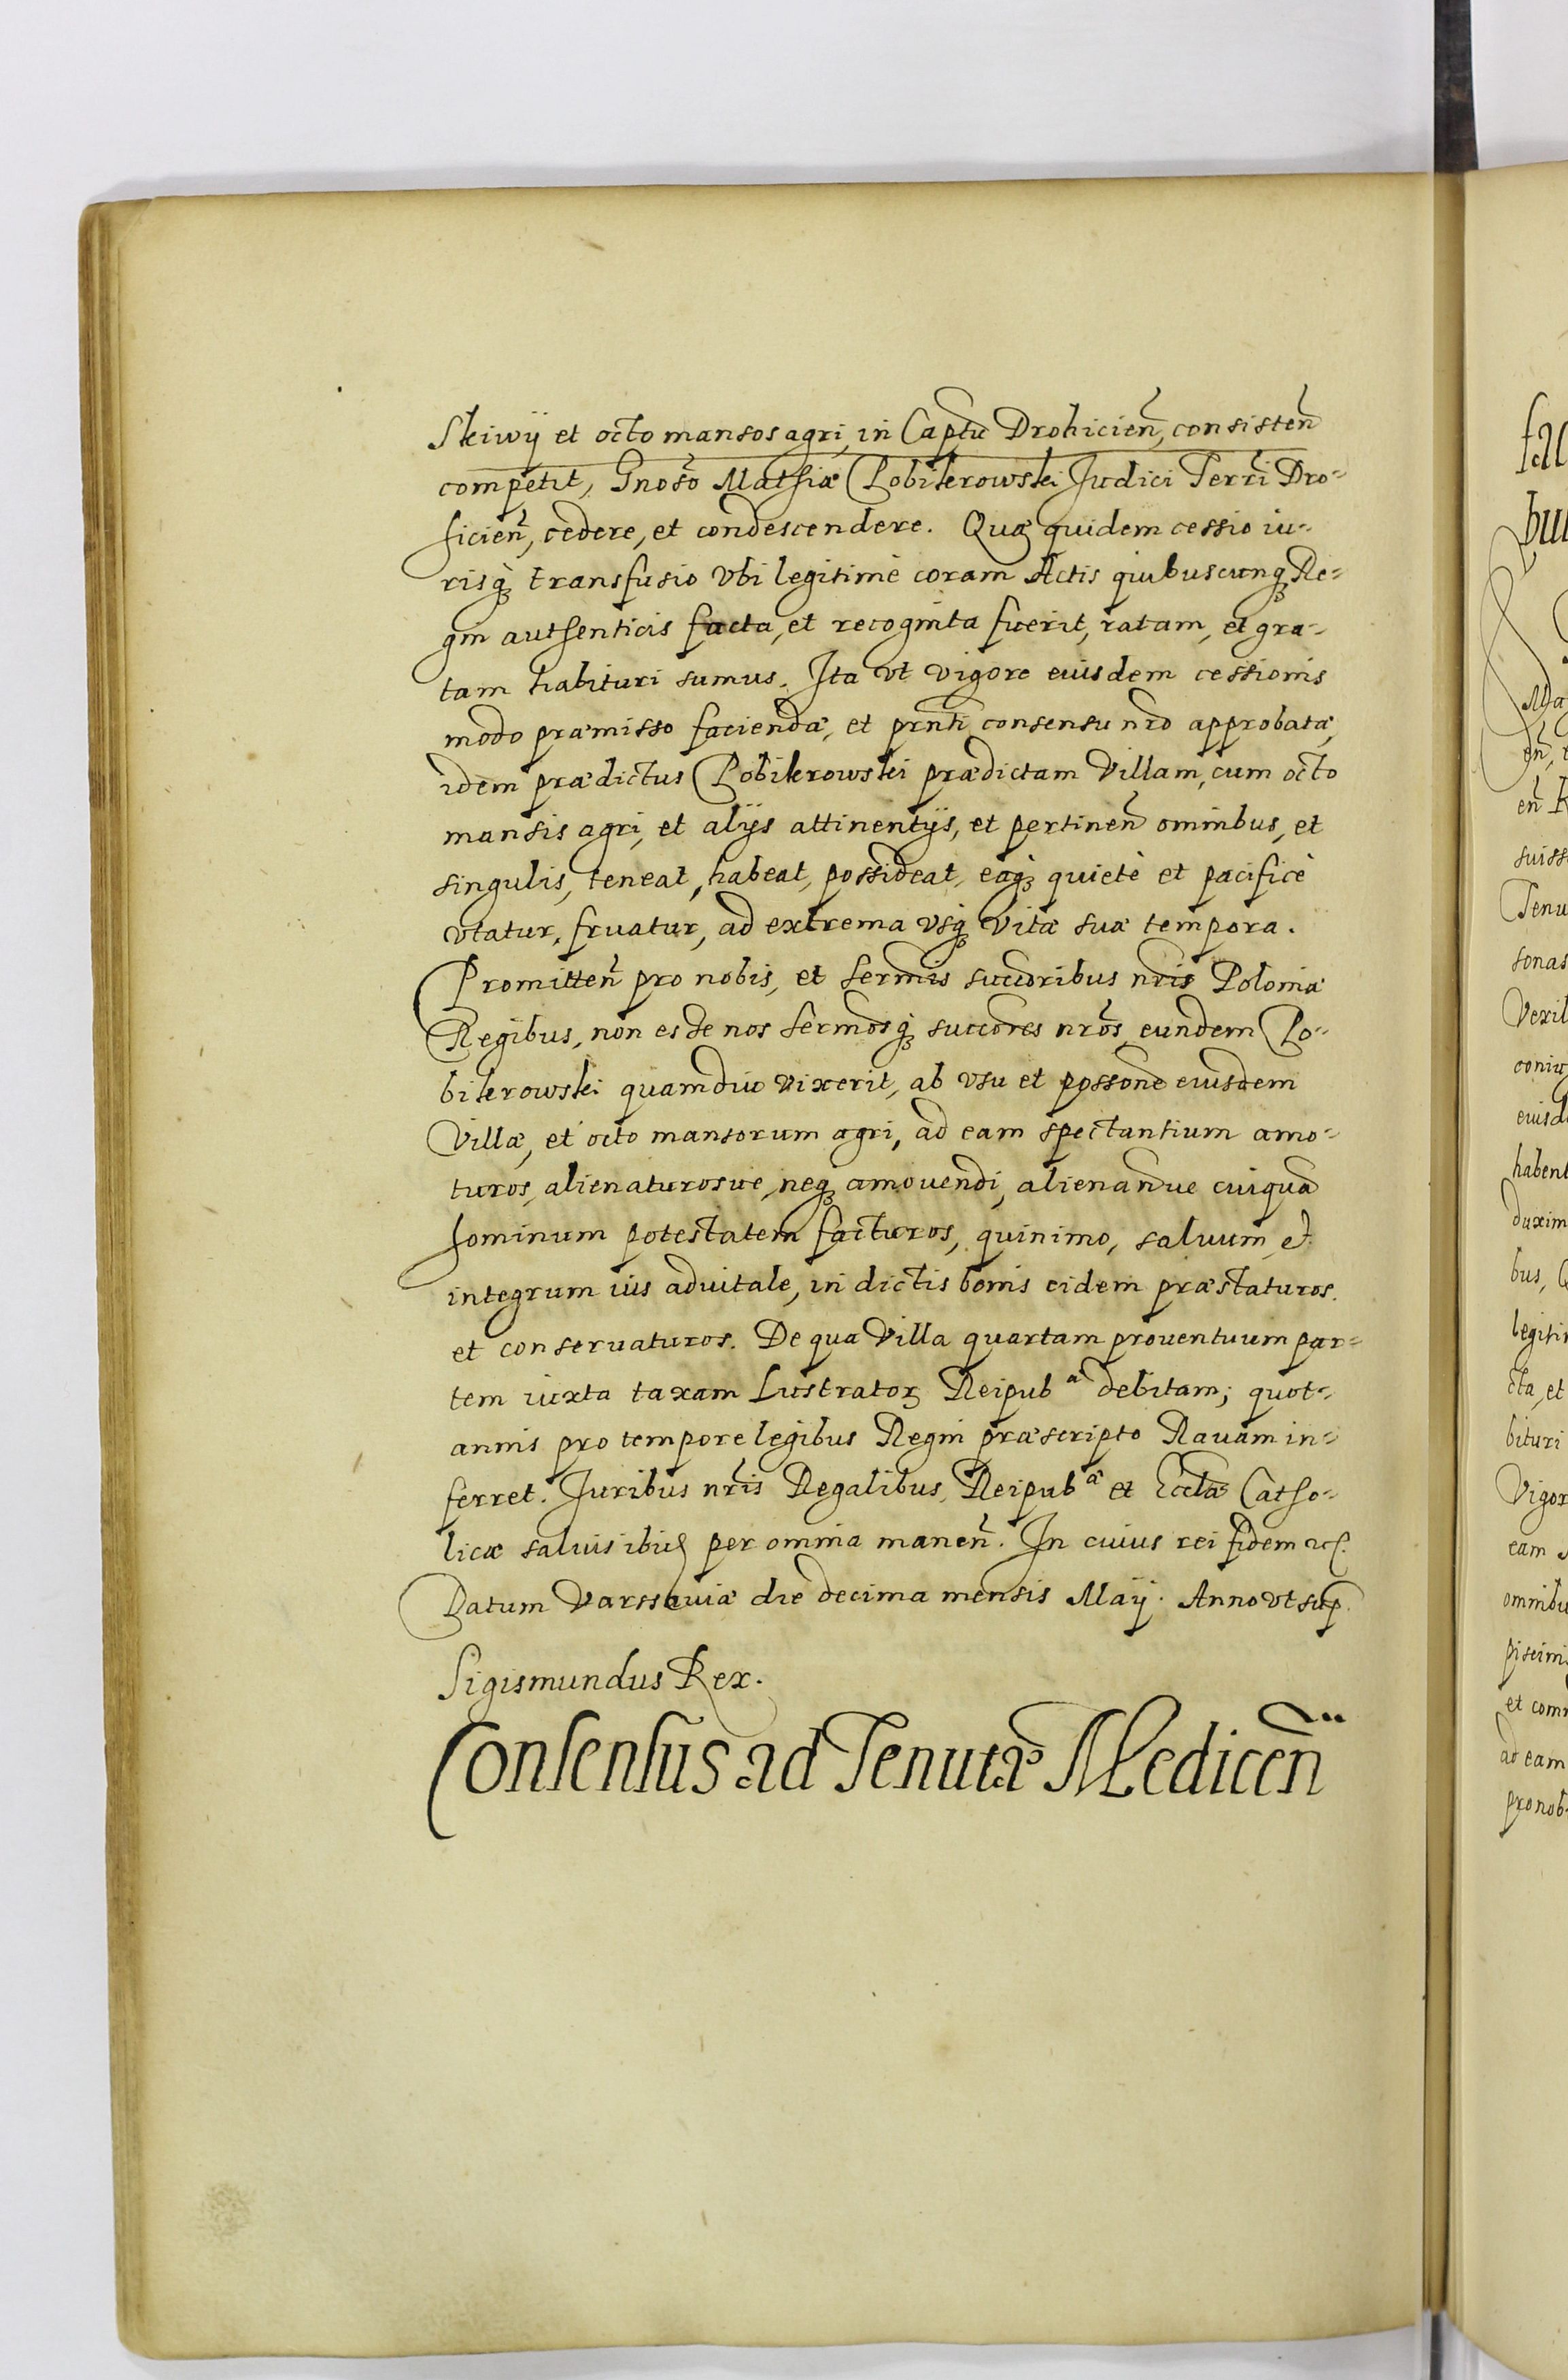 Skiwy et octo mansos agri, in Captu Drohicien̄, consisten̄
competit, Gnoso Mathiæ Pobikrowski Judici Terrī Dro-
hicien̄, cedere, et condescendere. Quæ quidem cessio iu-
risq́ʒ transfusio vbi legitimè coram Actis quibuscunqʒ Re-
gni authenticis facta, et recognita fuerit, ratam, et gra-
tam habituri sumus. Ita vt vigore euisdem cessionis
modo præmisso faciendæ, et prnti consensu nro approbatæ,
idem prædictus Pobikrowski prædictam Villam, cum octo
mansis agri, et alijs attinentijs, et pertinen̄ omnibus, et
singulis, teneat, habeat, possideat, eaq́ʒ quietè et pacificè
vtatur, fruatur, ad extrema vsqʒ vitæ suæ tempora.
Promitten̄ pro nobis, et Sermis succoribus nris Poloniæ
Regibus, non esse nos Sermosq́ʒ succores nros, eundem Po-
bikrowski quamdiu vixerit, ab vsu et possone eiusdem
Villæ, et octo mansorum agri, ad eam spectantium amo-
turos, alienaturosue, neqʒ amouendi, alienandue cuiquā
hominum potestatem facturos, quinimo, saluum et
integrum ius aduitale, in dictis bonis eidem præstaturos.
et conseruaturos. De qua Villa quartam prouentuum par-
tem iuxta taxam Lustratorʒ Reipubᵃ debitam; quot-
annis pro tempore legibus Regni præscripto Rauam in-
ferret. Juribus nris Regalibus, Reipubᵃ et Ecclæ Catho-
licæ saluis ibidē per omnia manen̄. In cuius rei fidem etc.
Datum Varssauiæ die decima mensis Maij. Anno vt sup.
Sigismundus Rex.
Consensus ad Tenutā Medicen̄